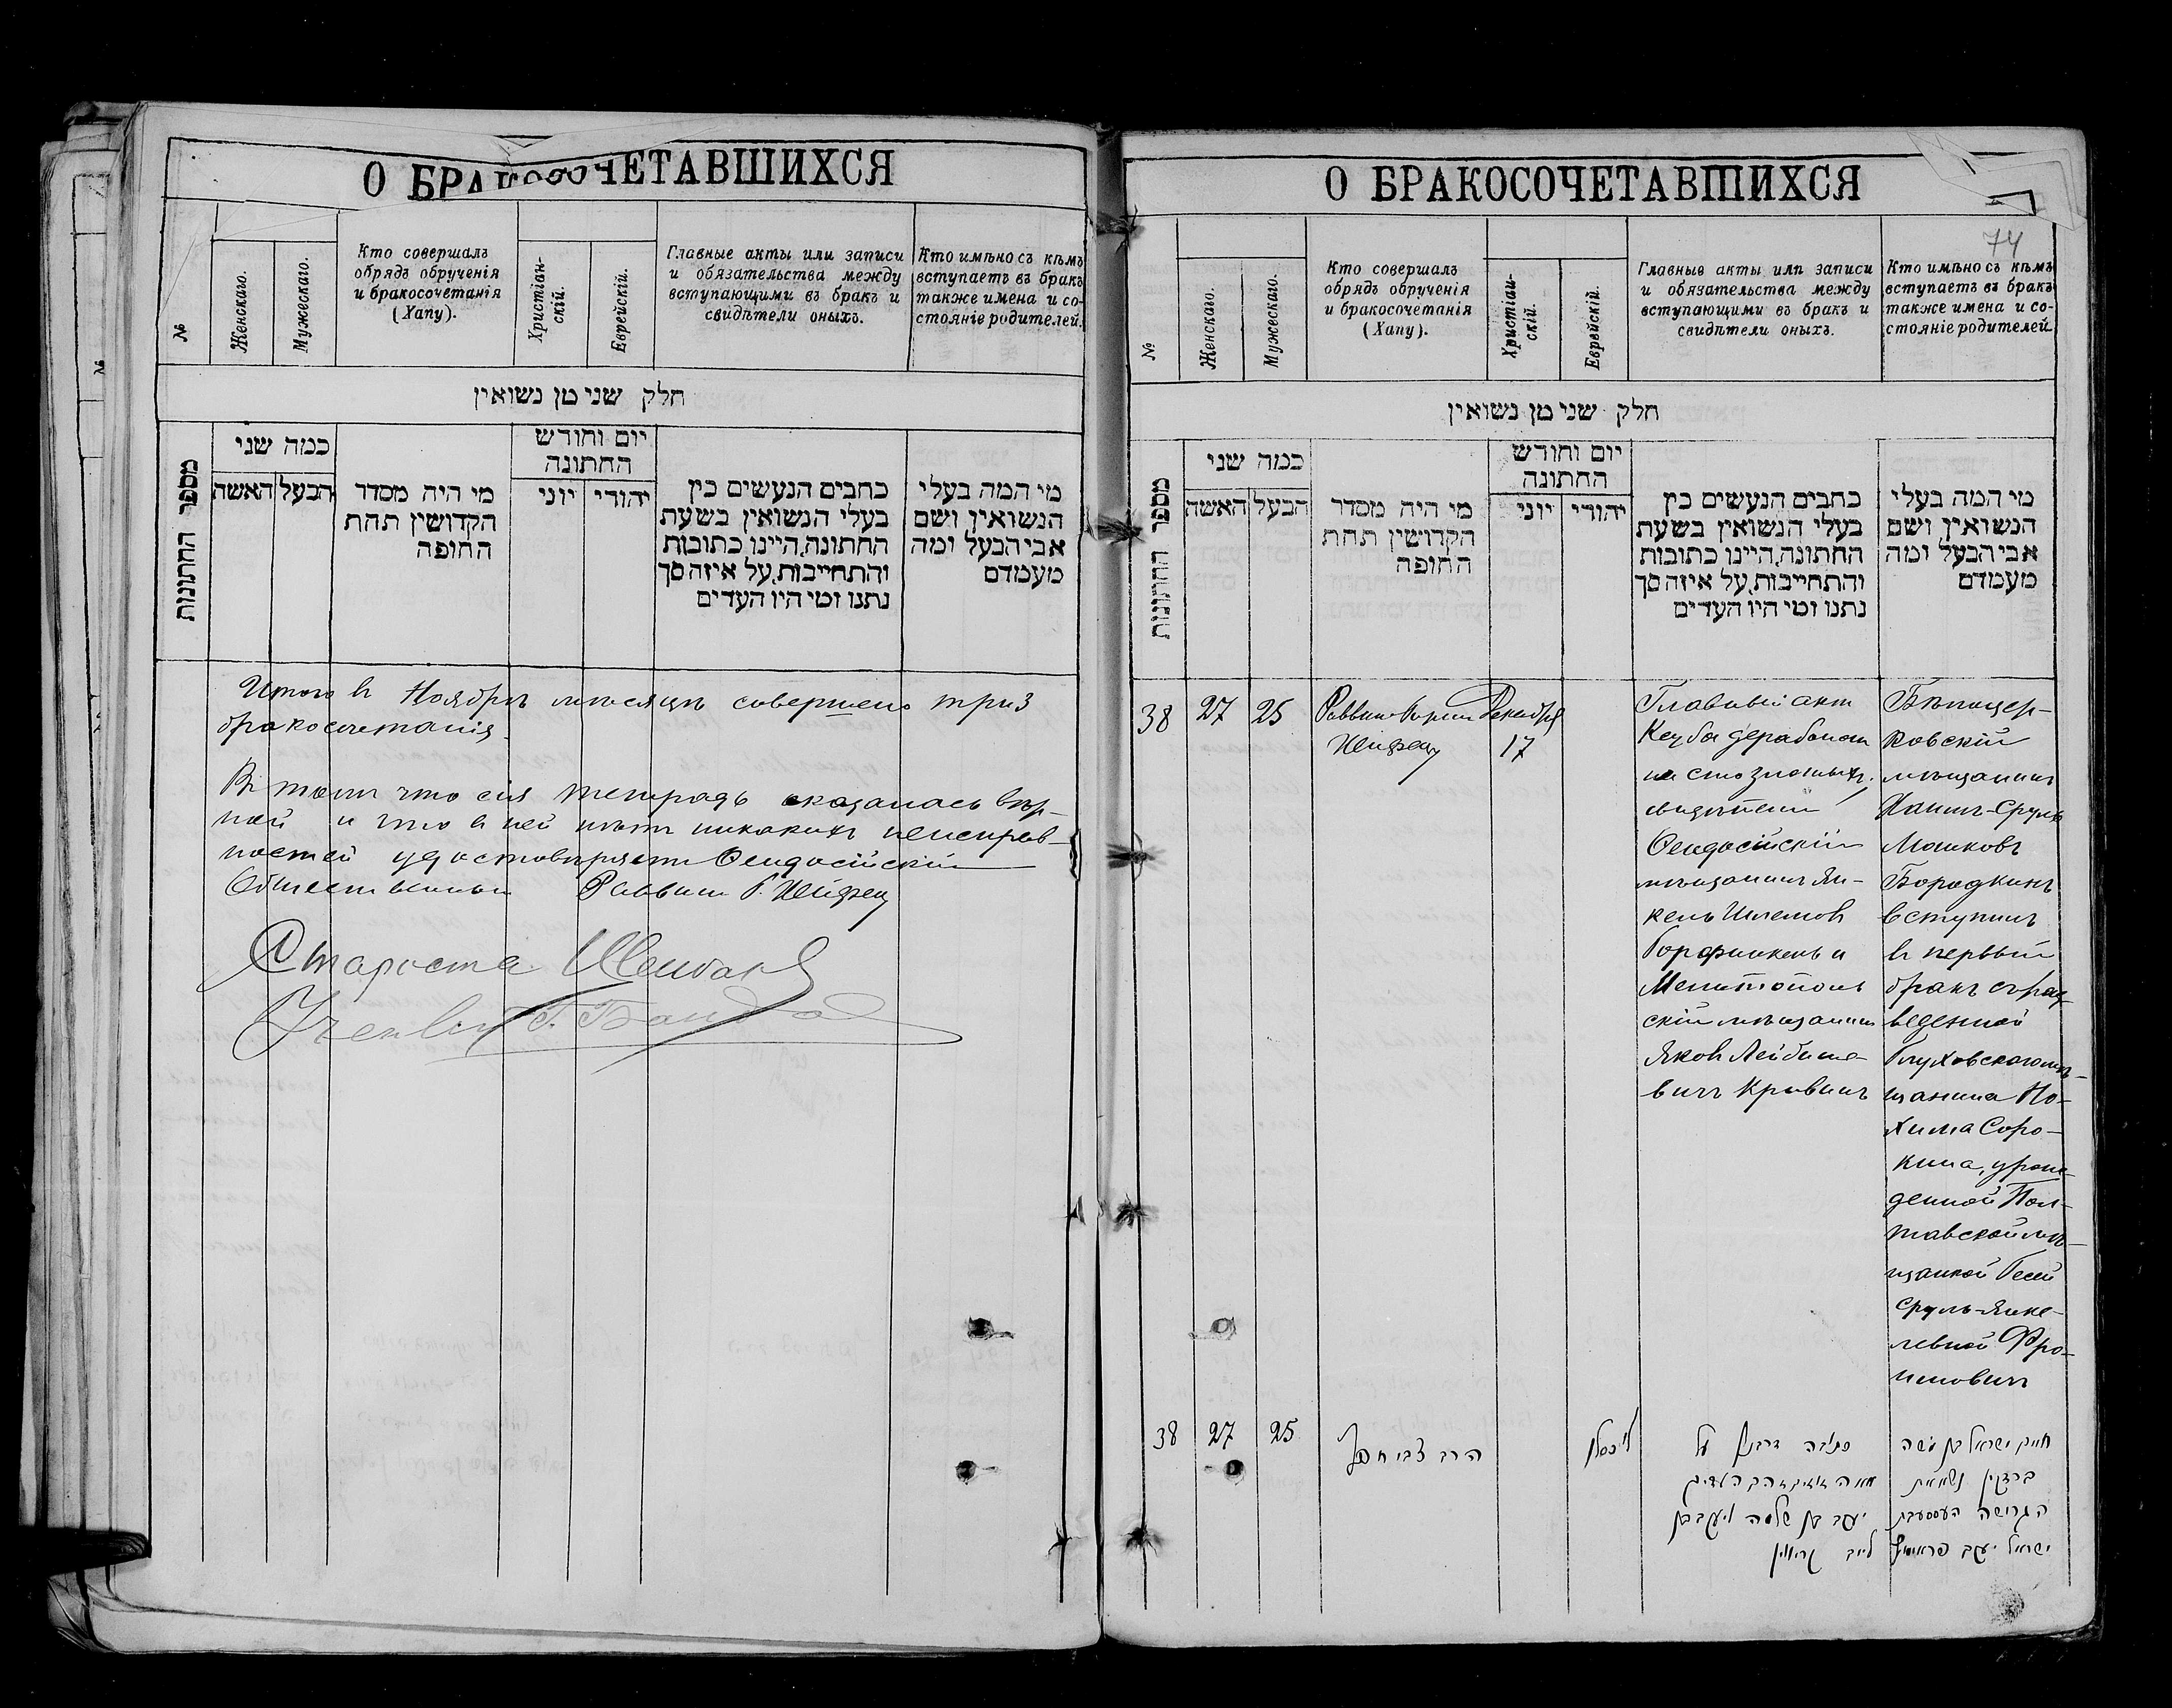 О БРАКОСОЧЕТАВШИХСЯ
№
Женскаго.
Мужескаго.
Кто совершалъ
обрядъ обрученія
и бракосочетанія
(Хапу).
Христіан-
скій.
Еврейскій.
Главные акты или записи
и обязательства между
вступающими въ бракъ и
свидѣтели оныхъ.
Кто имѣно съ кѣмъ
вступаетъ въ бракъ
также имена и со-
стояніе родителей.
חלק שני מן נשואין
מספר החתונות
כמה שני
הבעל
האשה
מי היה מסדר
הקדושין תחת
החופה
יום וחודש
החתונה
יהודי
יוני
כתבים הנעשים בין
בעלי הנשואין בשעת
החתונה, היינו כתובות
והתחייבות, על איזה סך
נתנו ומי היו העדים
מי המה בעלי
הנשואין ושם
אבי הבעל ומה
מעמדם
Итого въ Ноябрѣ мѣсяцѣ совершено три 3
бракосочетанія.
Въ томъ что сія тетрадь оказалась вѣр-
ной и что въ ней нѣтъ никакихъ неисправ-
ностей удостовѣряетъ Ѳеодосійскій
Общественный Раввинъ Б. Хейфецъ
Староста
О БРАКОСОЧЕТАВШИХСЯ
74
№
Женскаго.
Мужескаго.
Кто совершалъ
обрядъ обрученія
и бракосочетанія
(Хапу).
Христіан-
скій.
Еврейскій.
Главные акты или записи
и обязательства между
вступающими въ бракъ и
свидѣтели оныхъ.
Кто имѣно съ кѣмъ
вступаетъ въ бракъ
также имена и со-
стояніе родителей
חלק שני מן נשואין
מספר החתונות
כמה שני
הבעל
האשה
מי היה מסדר
הקדושין תחת
החופה
יום וחודש
החתונה
יהודי
יוני
כתבים הנעשים בין
בעלי הנשואין בשעת
החתונה, היינו כתובות
והתחייבות, על איזה סך
נתנו ומי היו העדים
מי המה בעלי
הנשואין ושם
אבי הבעל ומה
מעמדם
38
27
25
Раввинъ
Хейфецъ
Декабря
17
Главный актъ
Кесуба дерабонон
на сто злотыхъ.
свидѣтели
Ѳеодосійскій
мѣщанинъ Ян-
кель Шлемов
Горфинкель и
Мелитополь
скій мѣщанинъ
Яковъ Лейбише-
вичъ Кривинъ
Бѣлоцер-
ковскій
мѣщанинъ
Хаимъ-Сруль
Мошковъ
Бородкинъ
вступилъ
въ первый
бракъ съ раз-
веденной
Глуховскаго мѣ-
щанина Но-
хима Соро-
кина, урож-
денной Пол-
тавской мѣ-
щанкой Гесей
Сруль-Янке-
левной Фро-
имовичъ
38
27
25
הרב צבי חפץ
כסלו
כתובה דרבנן על
מאה
יעקב בן שלמה ויעקב בן
לייב קריווין
חיים ישראל בן משה
ברדקין נשא את
הגרושה
ישראל יעקב